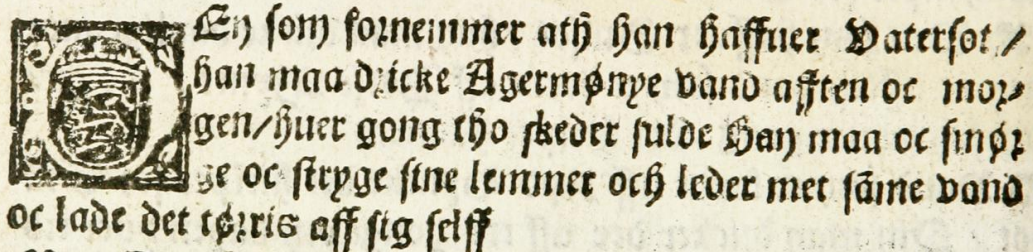 DEn som fornemmer ath han haffuer Vatersot /
han maa dricke Agermønye vand afften oc mor⸗
gen/huer gong tho skeder fulde Han maa oc smør
ge oc stryge sine lemmer och leder met sāme vand
oc lade det tørris aff sig selff